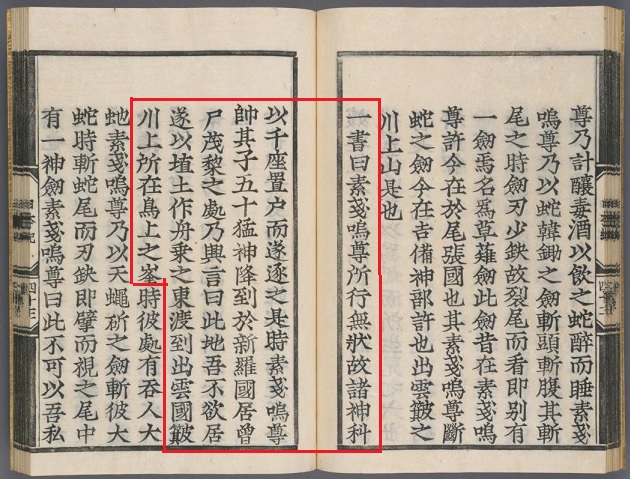 尊乃計釀毒酒以飲之蛇醉而睡素戔
嗚尊乃以蛇韓鋤之劔斬頭斬腹其斬
尾之時劔刃少缺故裂尾而看即別有
一劔焉名爲草薙劔此劔昔在素戔嗚
尊許今在於尾張國也其素戔嗚尊斷
蛇之劔今在吉備神部許也出雲簸之
川上山是也
一書曰素戔嗚尊所行無狀故諸神科
以千座置戸而遂逐之是時素戔嗚尊
帥其子五十猛神降到於新羅國居曾
尸茂黎之處乃興言曰此地吾不欲居
遂以埴土作舟乘之東渡到出雲國簸
川上所在鳥上之峯時彼處有呑人大
虵素戔嗚尊乃以天蠅斫之劔斬彼大
蛇時斬蛇尾而刃缺即擘而視之尾中
有一神劔素戔嗚尊曰此不可以吾私
四十三